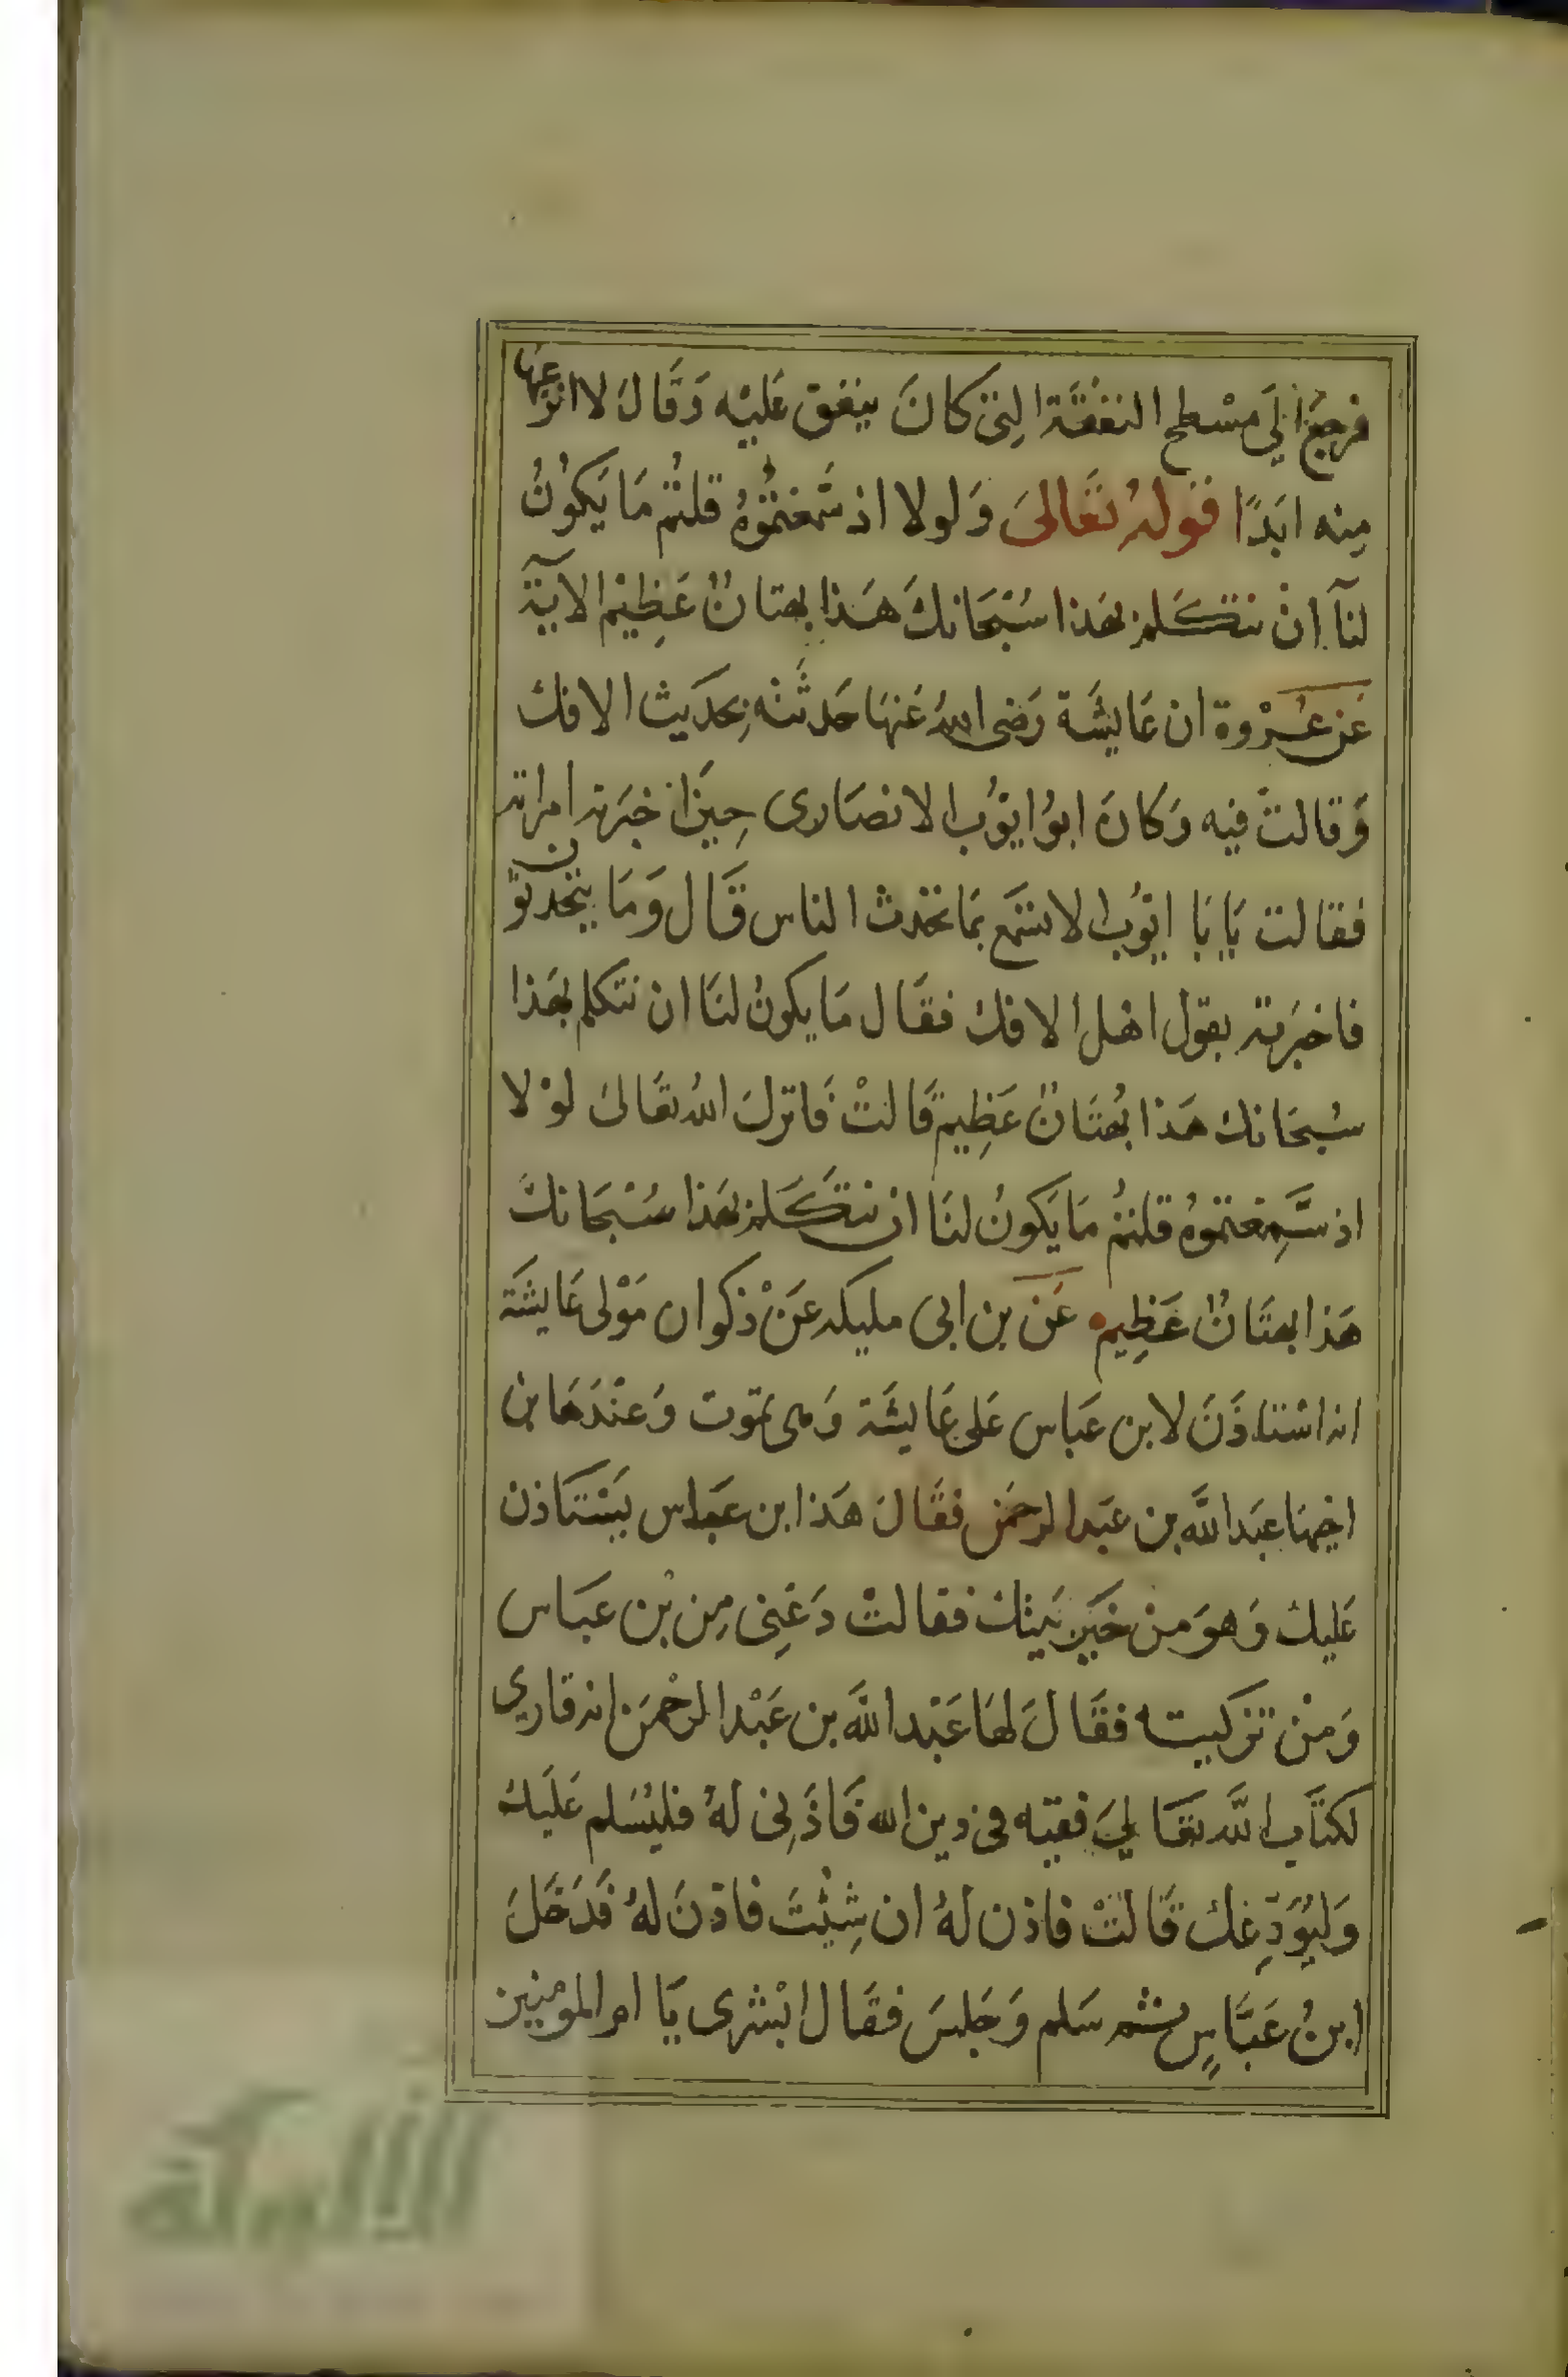 فرجع الَى مسْطح النفقَة التِى كانَ ينفق عَليْه وَقَالَ لا انزعها
مِنه ابَدًا قولهُ تعَالىَ وَلولا اذ سَمعْتمُوهُ قلتُم مَا يَكُونُ
لنَآ انْ نتكَلم بهَذا سُبْحَانكَ هَذا بهتانٌ عَظِيْم الآيَة
عَن عُرْوة ان عَايشَة رَضى اللهُ عَنهَا حَدثتهْ بحَديث الافك
وَقالتْ فيه وَكانَ ابوُ ايوُب الانصَارى حِينَ اخبَرته امراته
فقالت يَابَا ايوُب الا تسْمَع بمَا تحَدث الناس قَال وَمَا يتحَدثون
فاخبَرته بقول اهْل الافك فقَال مَا يكونُ لنَا ان نتكلم بهَذا
سُبحَانك هَذا بُهتَانٌ عَظِيم قَالتْ فَانزلَ اللهُ تعَالىَ لوْ لا
اذ سَّمِعْتموُه قلتمُ مَا يَكونُ لنَا ان نتكَلم بهَذا سُبْحَانكَ
هَذا بهتَانٌ عَظِيم عَن بن ابى مليكه عَنْ ذكوان مَوْلى عَايشَة
انه اسْتاذَنَ لابن عَباس عَلى عَايشَة وَهى تموت وَعنْدَهَا بن
اخيهَا عبَد اللَّه بن عبَد الرحمَن فقَالَ هَذا ابن عبَاس يَسْتَاذن
عَليك وَهوَ مِنْ خَيْرِ بَنيْك فقالتْ دَعْنِى مِن بْن عبَاس
وَمِنْ تزكيته فقَالَ لهَا عَبْد اللَّه بن عَبْد الرحْمَن انه قارى
لكتَاب اللَّه تعَالىَ فقيه فى دين الله فَاذَنِى لهُ فليُسَلم عَليَك
وَليُوَدِّعك قَالتْ فاذن لهُ ان شِئْتَ فاذنَ لهُ فَدَخَلَ
ابنُ عَبَّاسٍ ثم سَلم وَجَلسَ فقَال ابْشرى يَا ام المومنِين
الألوكة